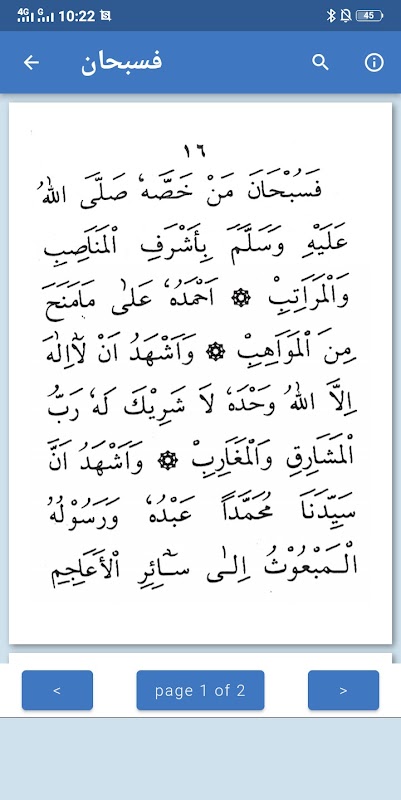 4G G 10:22 45
فسبحان
١٦
فَسُبْحَانَ مَنْ خَصَّهٗ صَلَّى اللهُ
عَلَيْهِ وَسَلَّمَ بِأَشْرَفِ الْمَنَاصِبِ
وَالْمَرَاتِبْ ۞ اَحْمَدُهٗ عَلٰى مَامَنَحَ
مِنَ الْمَوَاهِبْ ۞ وَاَشْهَدُ اَنْ لَآاِلٰهَ
اِلَّا اللهُ وَحْدَهٗ لَا شَرِيْكَ لَهٗ رَبُّ
الْمَشَارِقِ وَالْمَغَارِبْ ۞ وَاَشْهَدُ اَنَّ
سَيِّدَنَا مُحَمَّدًا عَبْدُهٗ وَرَسُوْلُهُ
الْمَبْعُوْثُ اِلٰى سَآئِرِ الْأَعَاجِمِ
< page 1 of 2 >